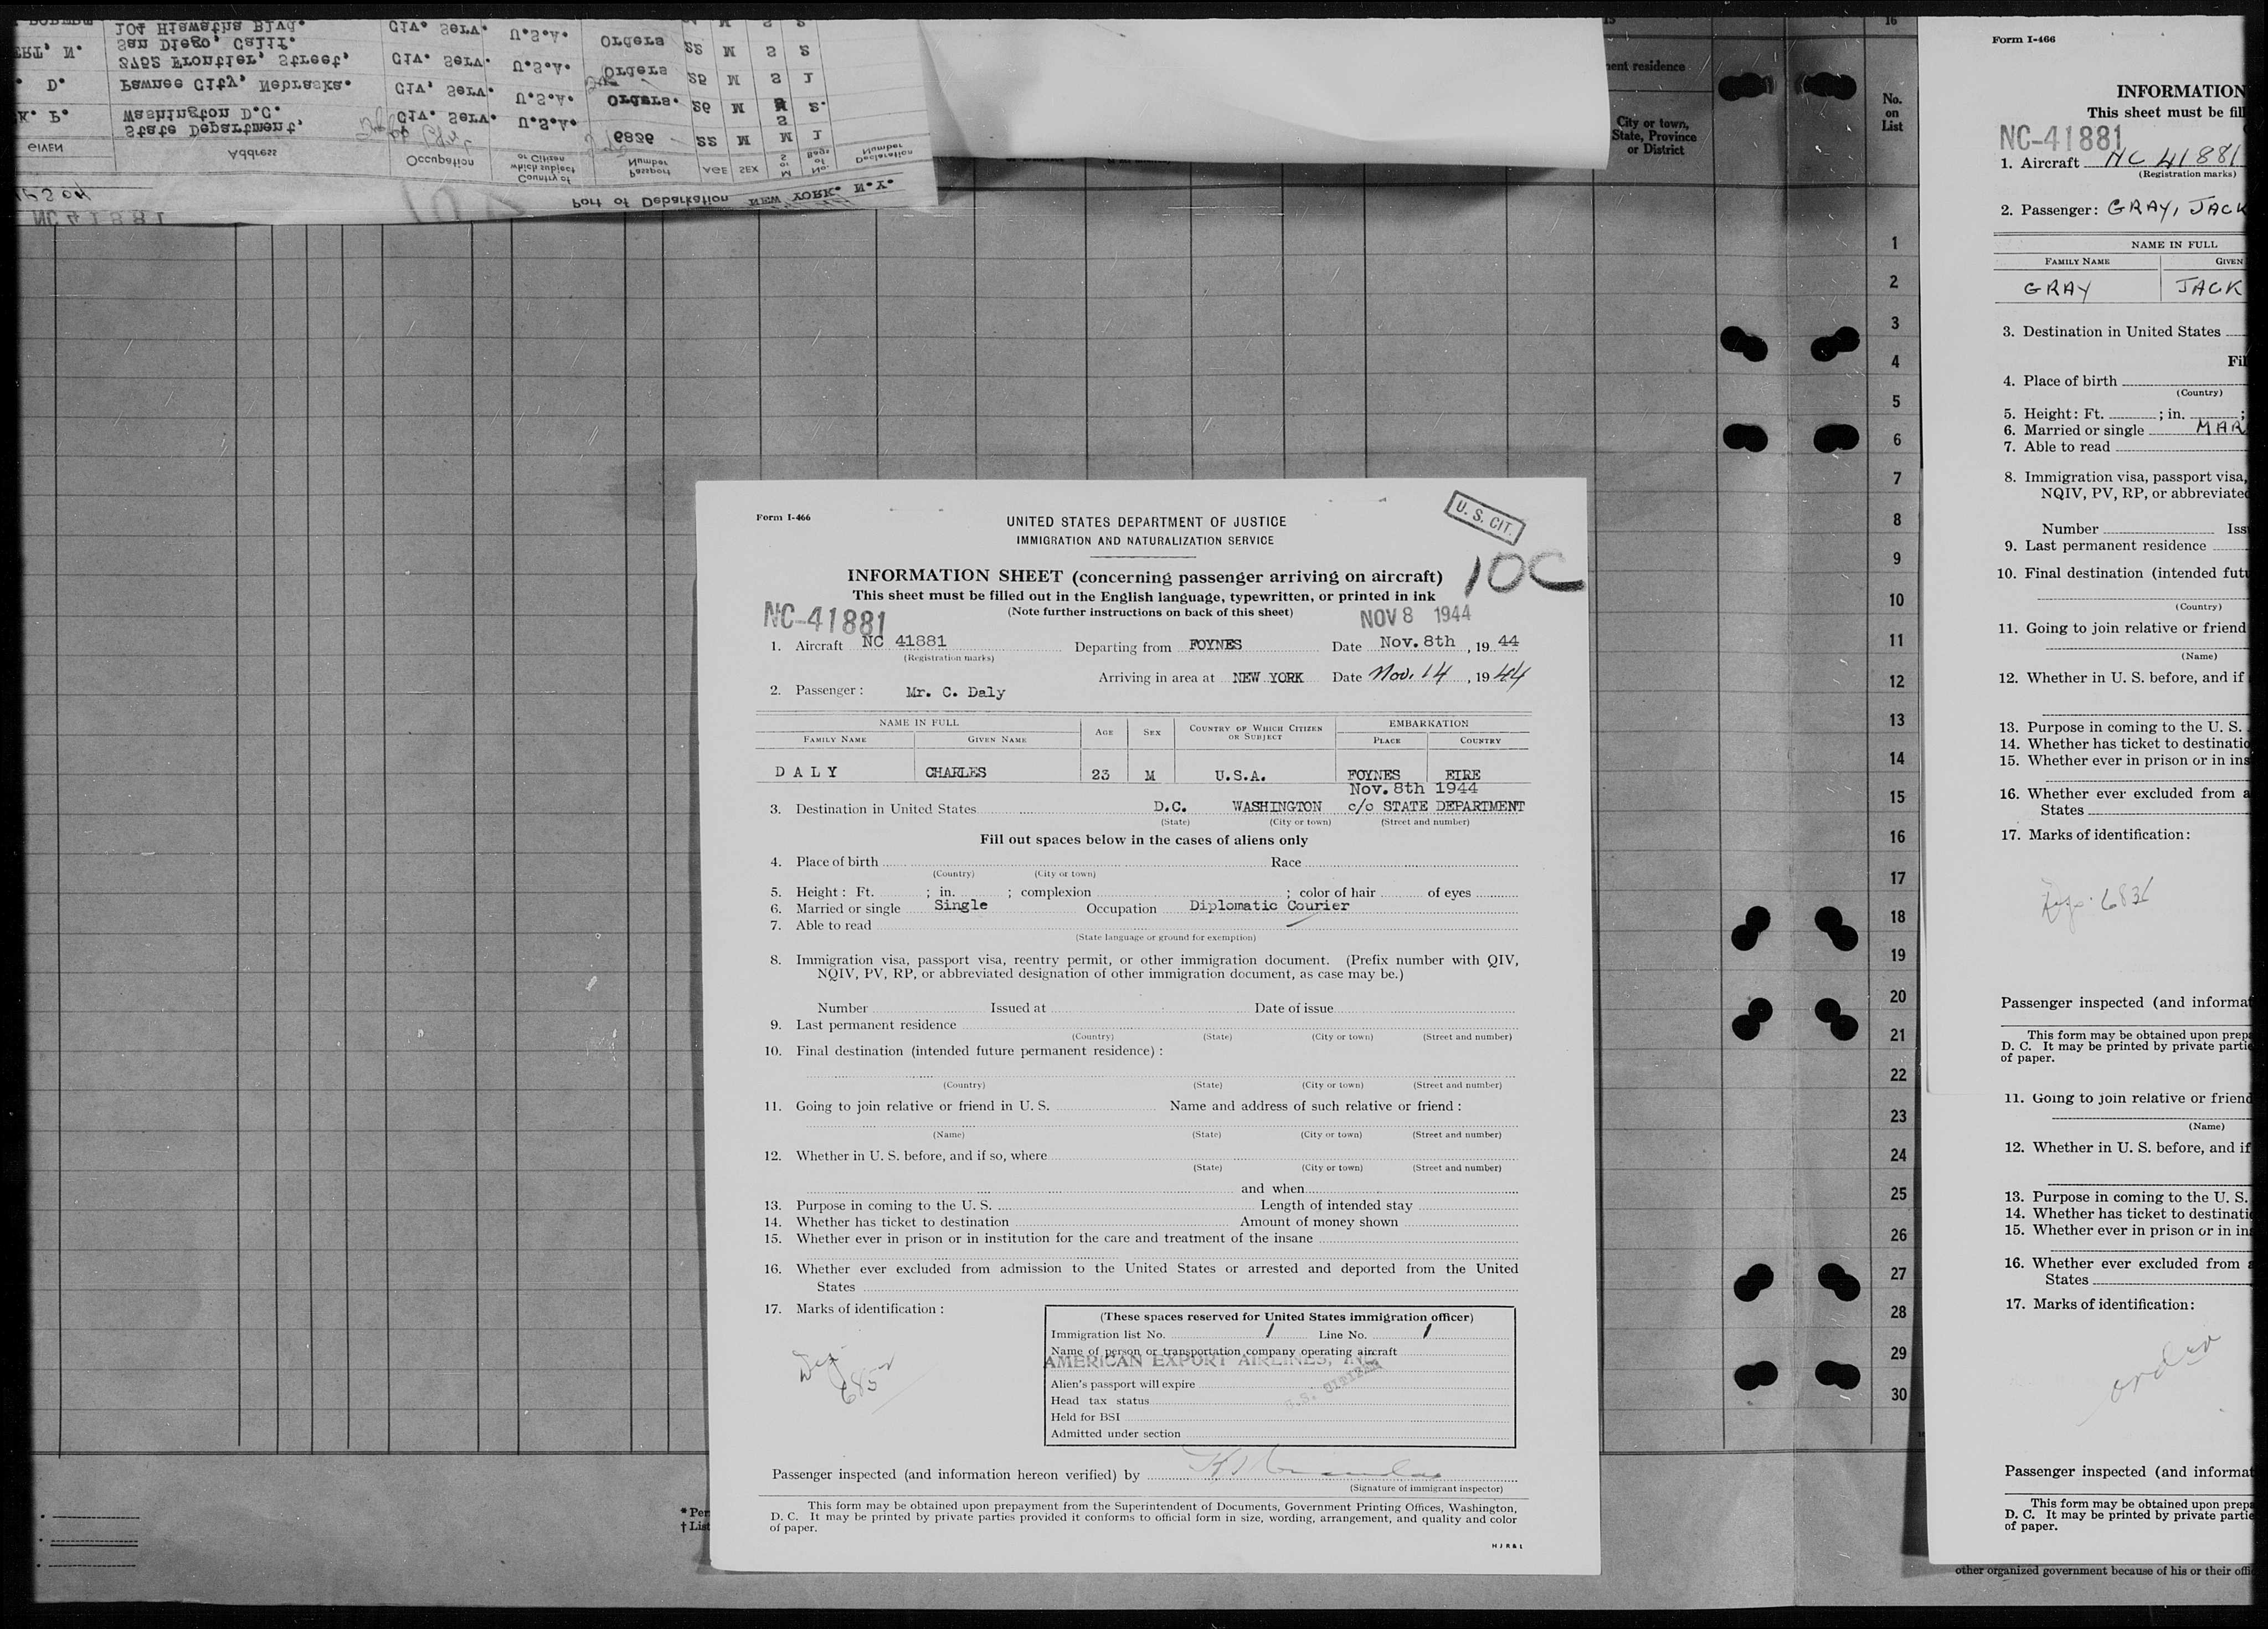 Form I-466
UNITED STATES DEPARTMENT OF JUSTICE
IMMIGRATION AND NATURALIZATION SERVICE
U. S. CIT.
10C
INFORMATION SHEET (concerning passenger arriving on aircraft)
This sheet must be filled out in the English language, typewritten, or printed in ink
(Note further instructions on back of this sheet)
NC-41881
NOV 8 1944
1. Aircraft NC 41881 Departing from FOYNES Date Nov. 8th, 19 44
(Registration marks)
Arriving in area at NEW YORK Date Nov. 14, 19 44
2. Passenger: Mr. C. Daly
NAME IN FULL AGE SEX COUNTRY OF WHICH CITIZEN OR SUBJECT EMBARKATION
FAMILY NAME GIVEN NAME PLACE COUNTRY
DALY CHARLES 23 M U.S.A. FOYNES EIRE
Nov. 8th 1944
3. Destination in United States D.C. WASHINGTON c/o STATE DEPARTMENT
(State) (City or town) (Street and number)
Fill out spaces below in the cases of aliens only
4. Place of birth Race
(Country) (City or town)
5. Height: Ft. ; in. ; complexion ; color of hair of eyes
6. Married or single Single Occupation Diplomatic Courier
7. Able to read
(State language or ground for exemption)
8. Immigration visa, passport visa, reentry permit, or other immigration document. (Prefix number with QIV,
NQIV, PV, RP, or abbreviated designation of other immigration document, as case may be.)
Number Issued at Date of issue
9. Last permanent residence
(Country) (State) (City or town) (Street and number)
10. Final destination (intended future permanent residence):
(Country) (State) (City or town) (Street and number)
11. Going to join relative or friend in U. S. Name and address of such relative or friend:
(Name) (State) (City or town) (Street and number)
12. Whether in U. S. before, and if so, where
(State) (City or town) (Street and number)
and when
13. Purpose in coming to the U. S. Length of intended stay
14. Whether has ticket to destination Amount of money shown
15. Whether ever in prison or in institution for the care and treatment of the insane
16. Whether ever excluded from admission to the United States or arrested and deported from the United
States
17. Marks of identification:
(These spaces reserved for United States immigration officer)
Immigration list No. 1 Line No. 1
Name of person or transportation company operating aircraft
AMERICAN EXPORT AIRLINES, INC.
Alien's passport will expire
U.S. CITIZEN
Head tax status
Held for BSI
Admitted under section
Passenger inspected (and information hereon verified) by
(Signature of immigrant inspector)
This form may be obtained upon prepayment from the Superintendent of Documents, Government Printing Offices, Washington,
D. C. It may be printed by private parties provided it conforms to official form in size, wording, arrangement, and quality and color
of paper.
H J R & L
NC 41881
Port of Debarkation NEW YORK. N.Y.
GIVEN Address Occupation Country of which subject or Citizen Passport Number AGE SEX S or M No. of Bags Declaration Number
K. P. State Department, Washington D.C. Civ. Serv. U.S.A. 6836 22 M M 1
D. Pawnee City, Nebraska. Civ. Serv. U.S.A. Orders. 26 M S.
ERT, N. 3752 Frontier, Street, San Diego, Calif. Civ. Serv. U.S.A. Orders 25 M S 1
104 Hiawatha Blvd. Civ. Serv. U.S.A. Orders 22 M S 2
15
ent residence
City or town,
State, Province
or District
16
No.
on
List
1
2
3
4
5
6
7
8
9
10
11
12
13
14
15
16
17
18
19
20
21
22
23
24
25
26
27
28
29
30
* Per
† List
Form I-466
INFORMATION
This sheet must be fil
NC-41881
1. Aircraft NC 41881
(Registration marks)
2. Passenger: GRAY, JACK
NAME IN FULL
FAMILY NAME GIVEN
GRAY JACK
3. Destination in United States
Fil
4. Place of birth
(Country)
5. Height: Ft. ; in. ;
6. Married or single MAR
7. Able to read
8. Immigration visa, passport visa,
NQIV, PV, RP, or abbreviated
Number Iss
9. Last permanent residence
10. Final destination (intended futu
(Country)
11. Going to join relative or friend
(Name)
12. Whether in U. S. before, and if
13. Purpose in coming to the U. S.
14. Whether has ticket to destinatio
15. Whether ever in prison or in ins
16. Whether ever excluded from a
States
17. Marks of identification:
Passenger inspected (and informat
This form may be obtained upon prepa
D. C. It may be printed by private partie
of paper.
11. Going to join relative or friend
(Name)
12. Whether in U. S. before, and if
13. Purpose in coming to the U. S.
14. Whether has ticket to destinati
15. Whether ever in prison or in ins
16. Whether ever excluded from a
States
17. Marks of identification:
order
Passenger inspected (and informat
This form may be obtained upon prepa
D. C. It may be printed by private partie
of paper.
other organized government because of his or their offi